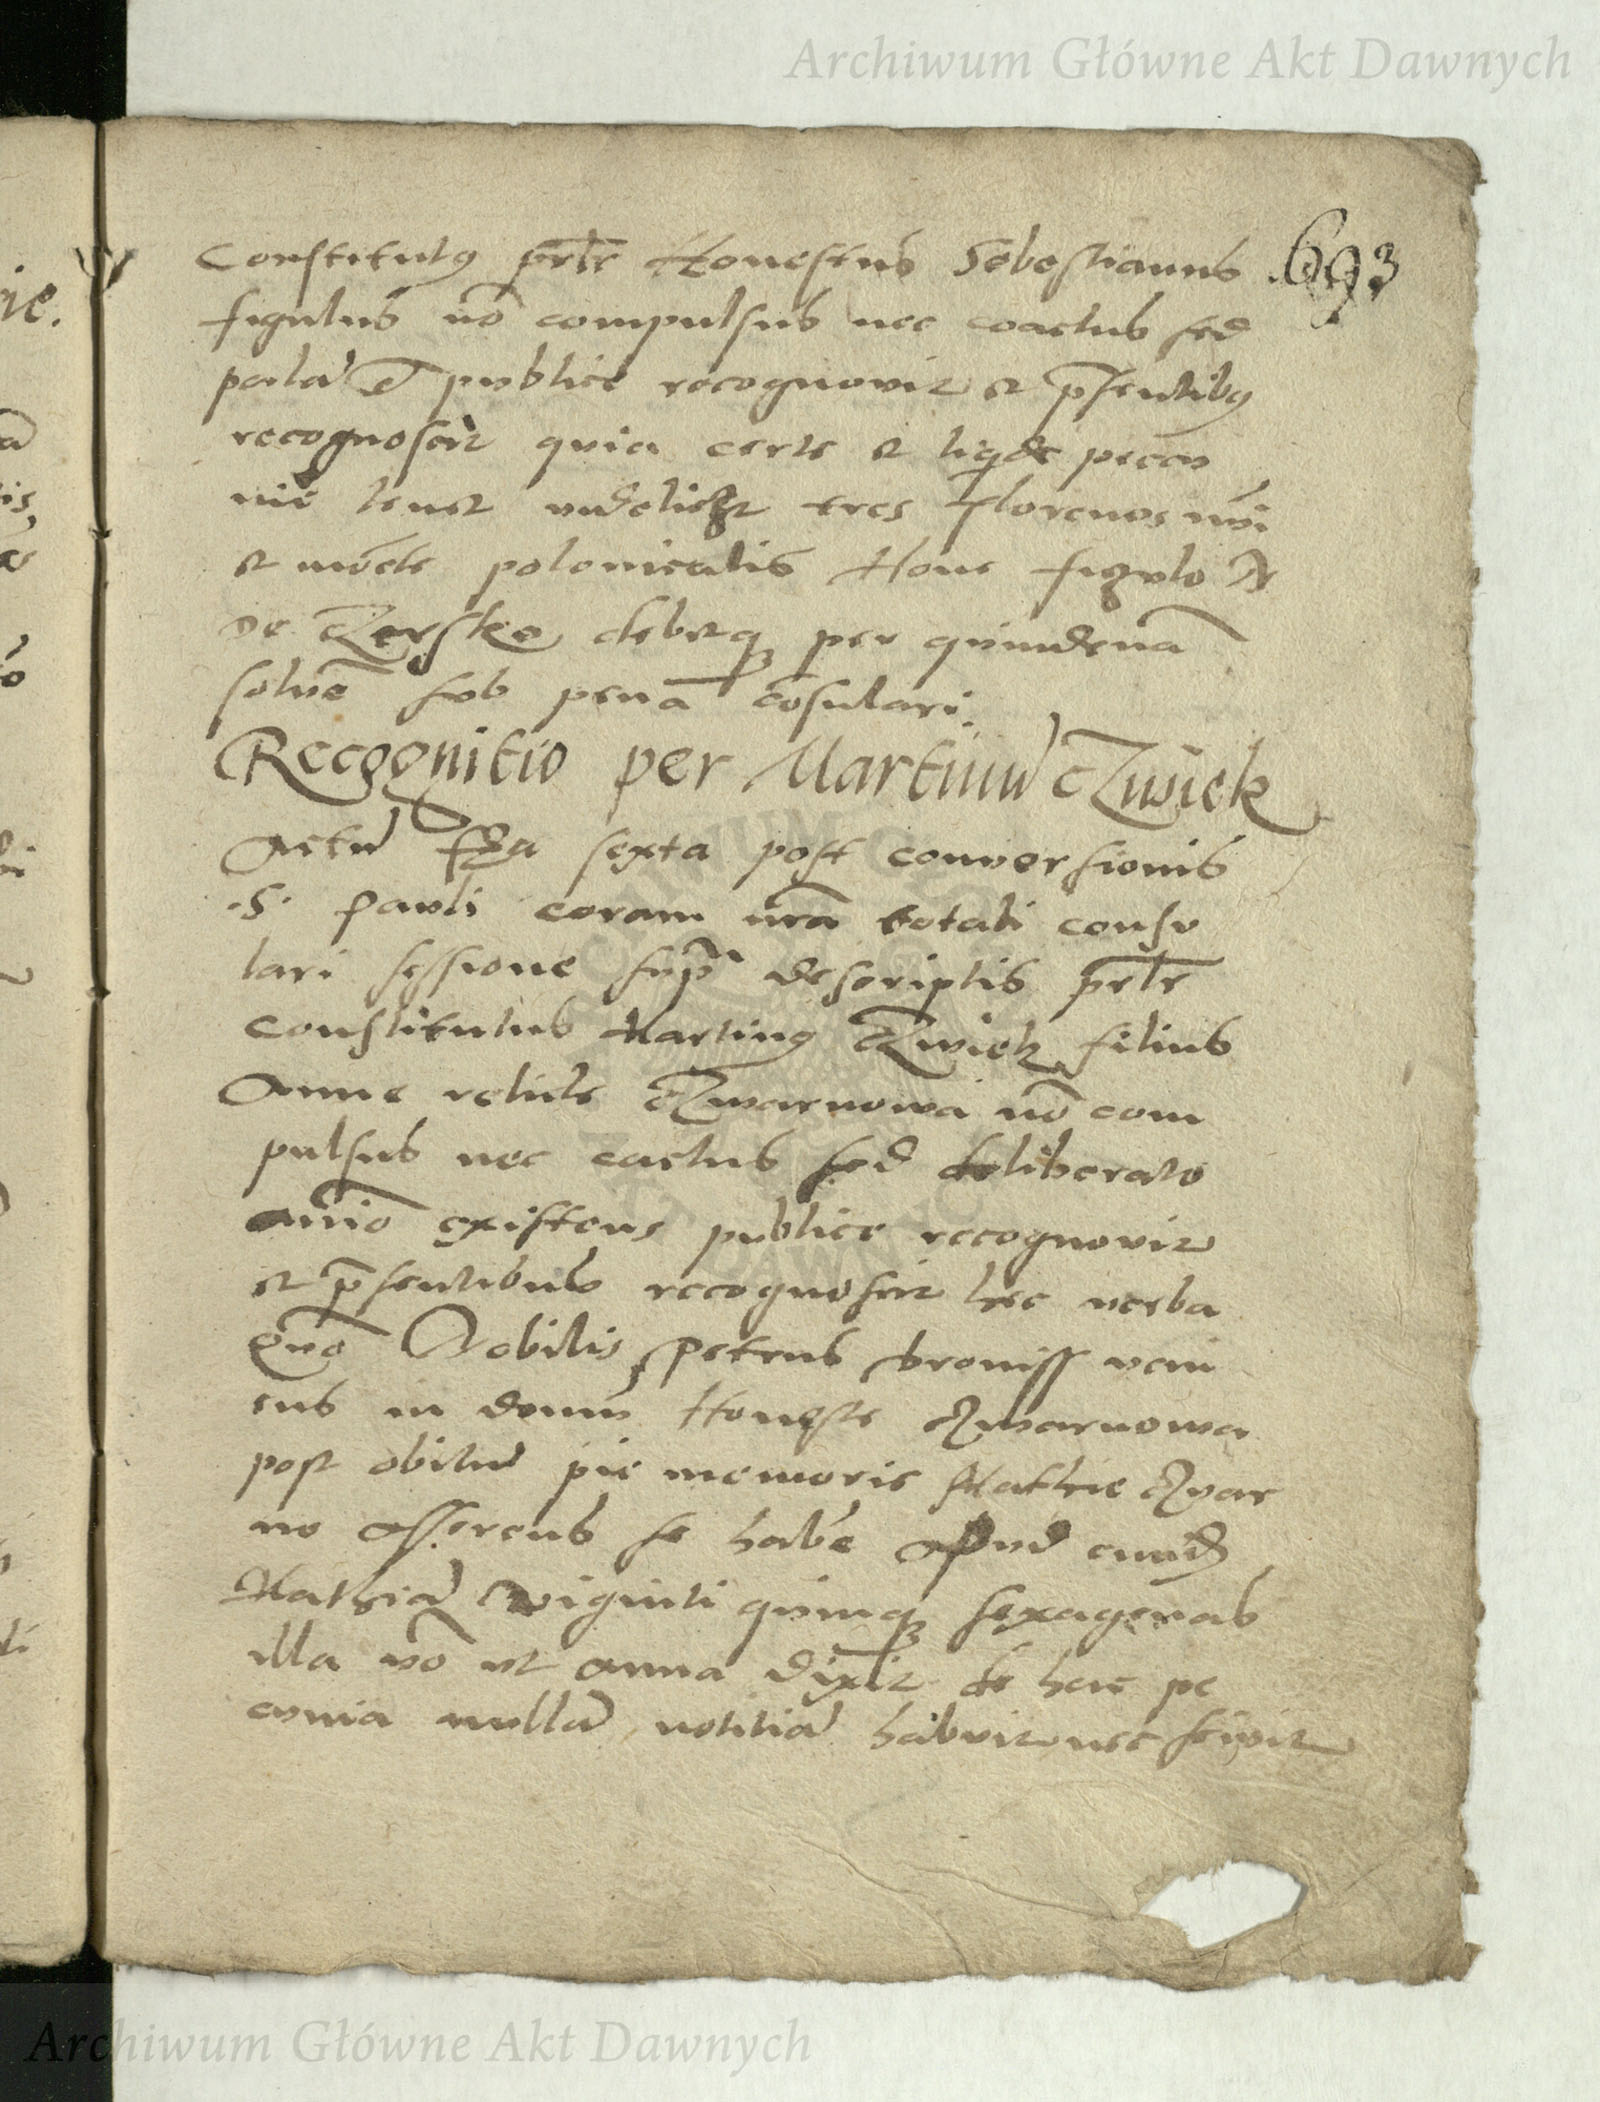 Archiwum Główne Akt Dawnych
693
Constitutus prlr Honestus Sebestianus
figulus nō compulsus nec coactus sed
palā et publice recognovit et p̄sentibus
recognoscit quia certe et liqde pecu
nie tenet videlicet tres florenos nūi
et monete polonicalis Hone figulo
de debetq̨ per quindenā
solvē sub penā cōsulari.
Recognitio per Martinū Czwiek
Actū fria sexta post conversionis
.S. Pauli coram nrā totali consu
lari sessione supra descriptis prlr
Constitutus Martinus Czwiek filius
Anne relicte Czwarnowa nō com
pulsus nec coactus sed deliberato
animo existens publice recognovit
et p̄sentibus recognoscit hec verba
Quō Nobilis Petrus Broniss veni
ens in domū Honeste Czwarnowa
post obitū pie memorie Mathie Czvar
no asserens se habē apud eundē
Mathiā viginti quinq̨ sexagenas
illa vō ut Anna dixit de hac pe
cunia nullā notitiā habuit nec scivit
Archiwum Główne Akt Dawnych